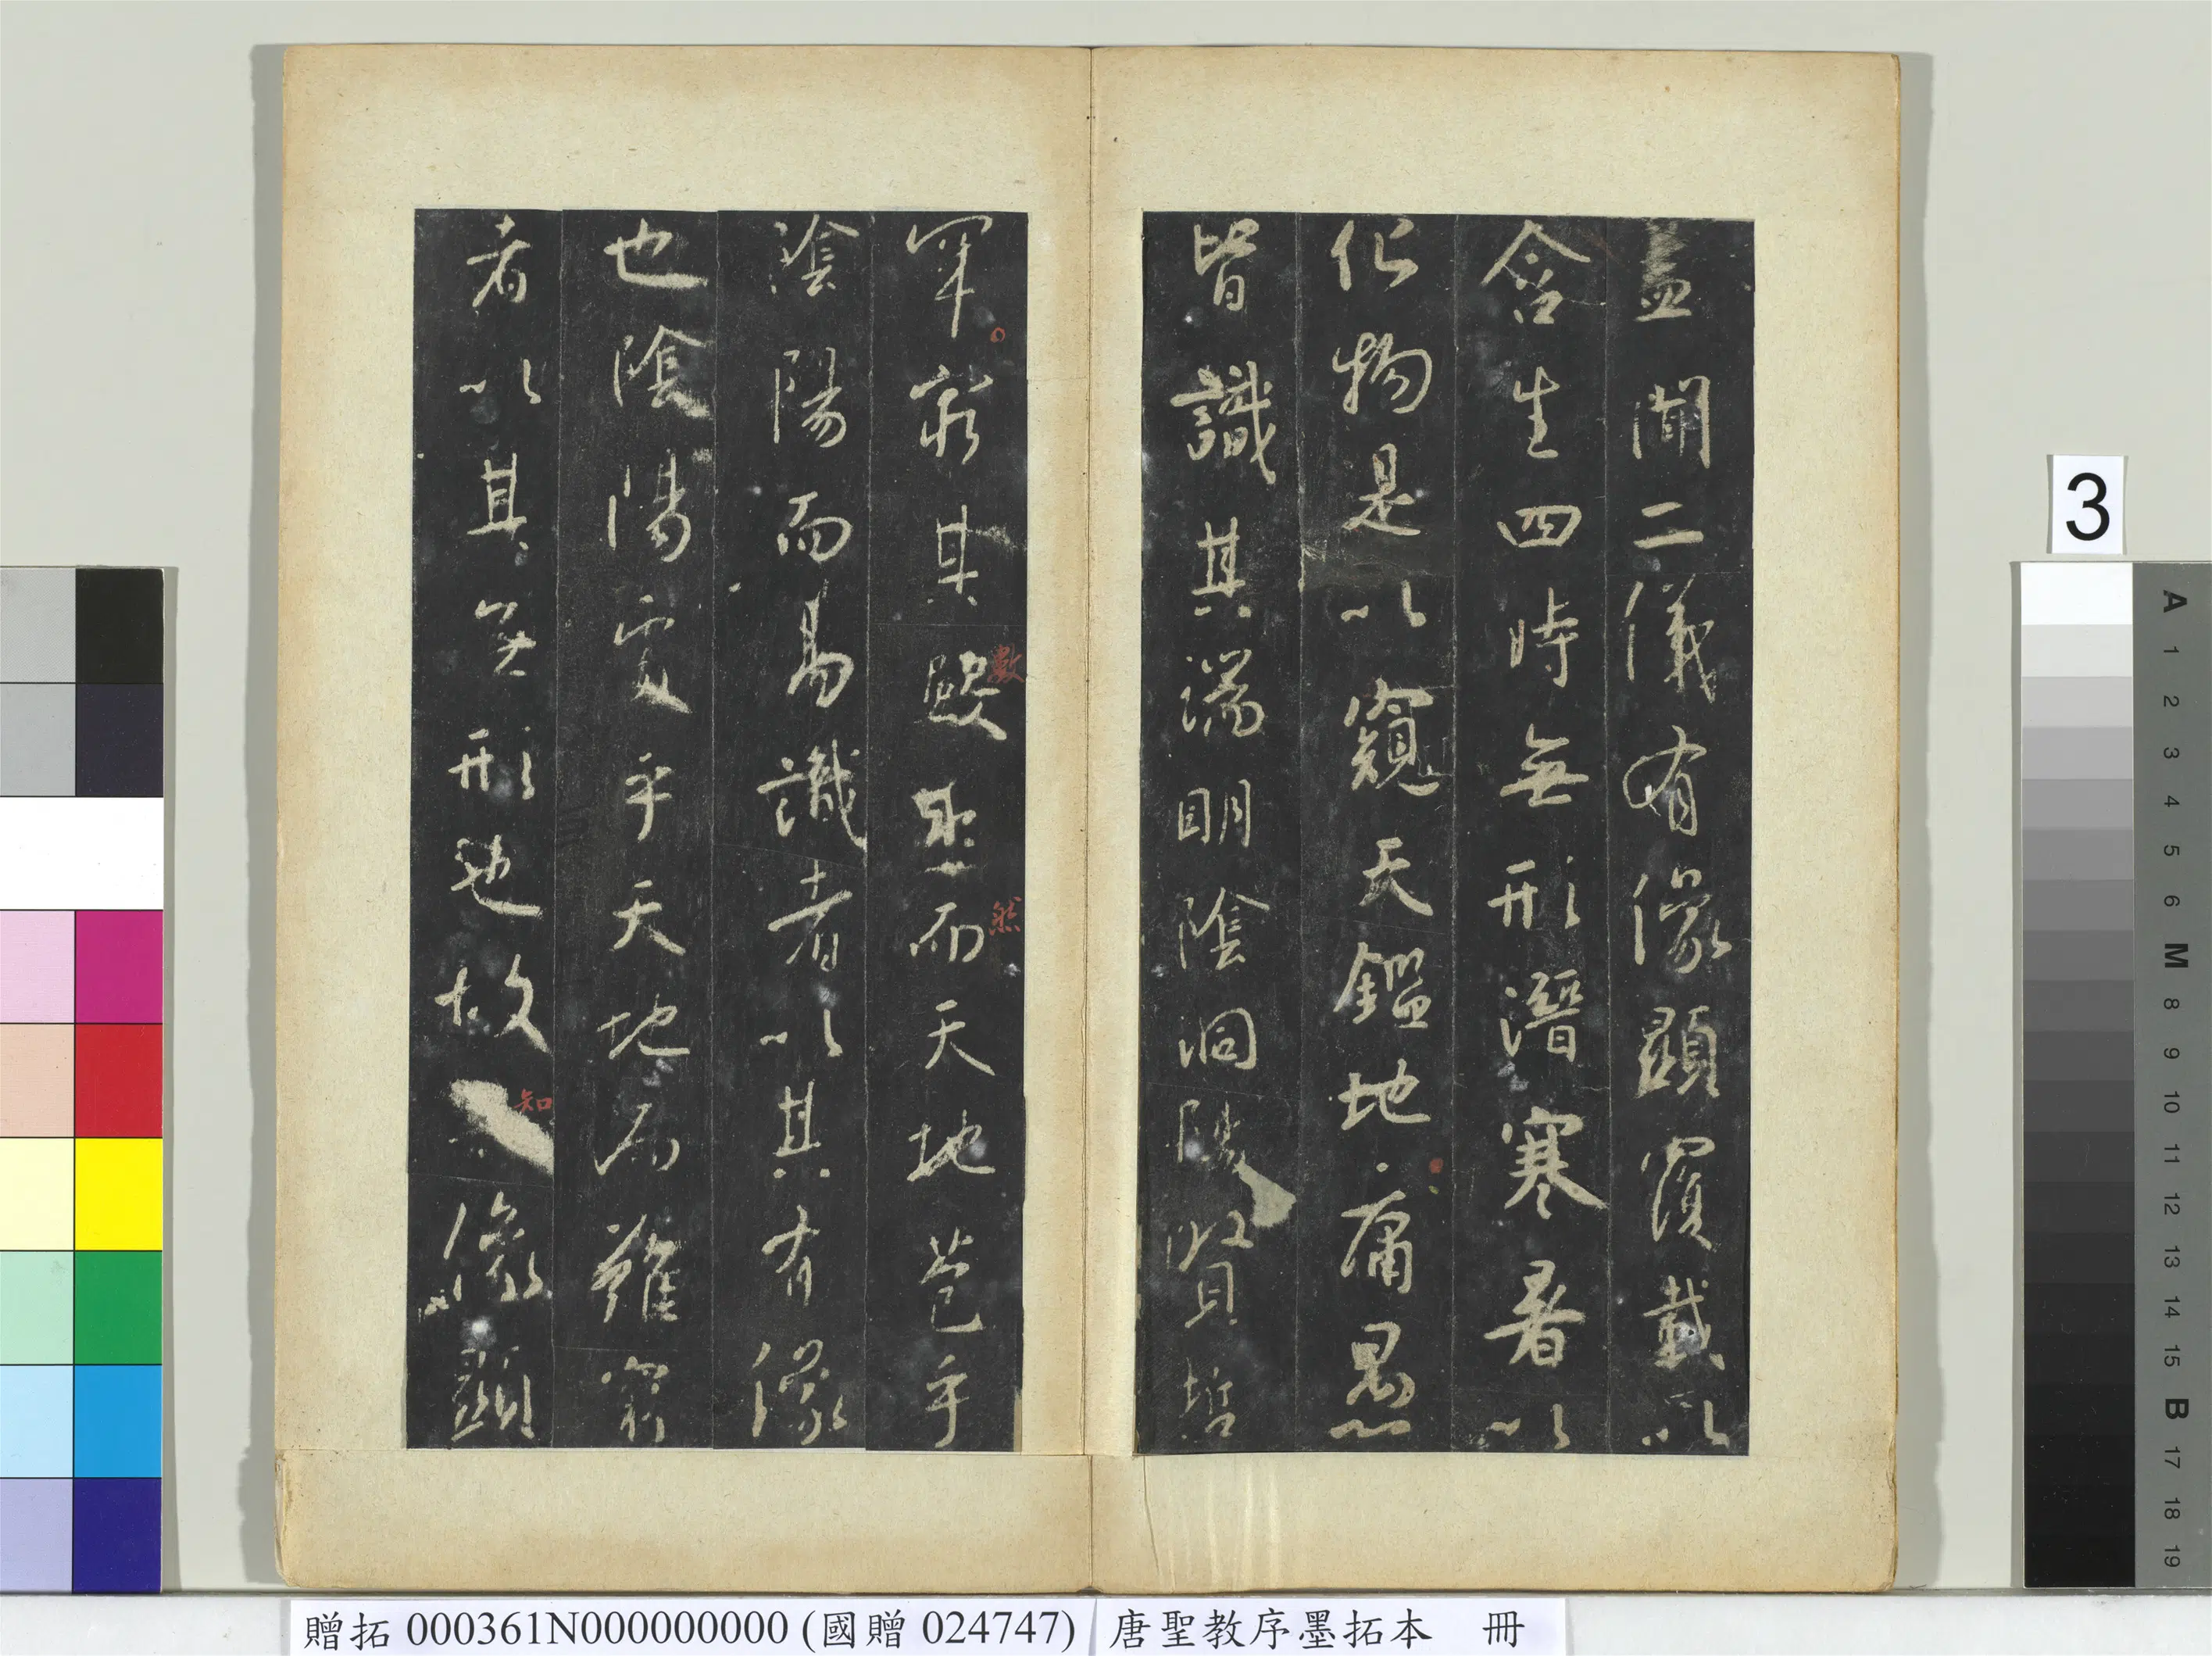 蓋聞二儀有像顯覆載以
含生四時無形潛寒暑以
化物是以窺天鑑地庸愚
皆識其端明陰洞陽賢哲
罕窮其數然而天地苞乎
數
然
陰陽而易識者以其有像
也陰陽處乎天地而難窮
者以其無形也故像顯
知
3
A 1 2 3 4 5 6 M 8 9 10 11 12 13 14 15 B 17 18 19
贈拓 000361N000000000 (國贈 024747)
唐聖教序墨拓本 冊